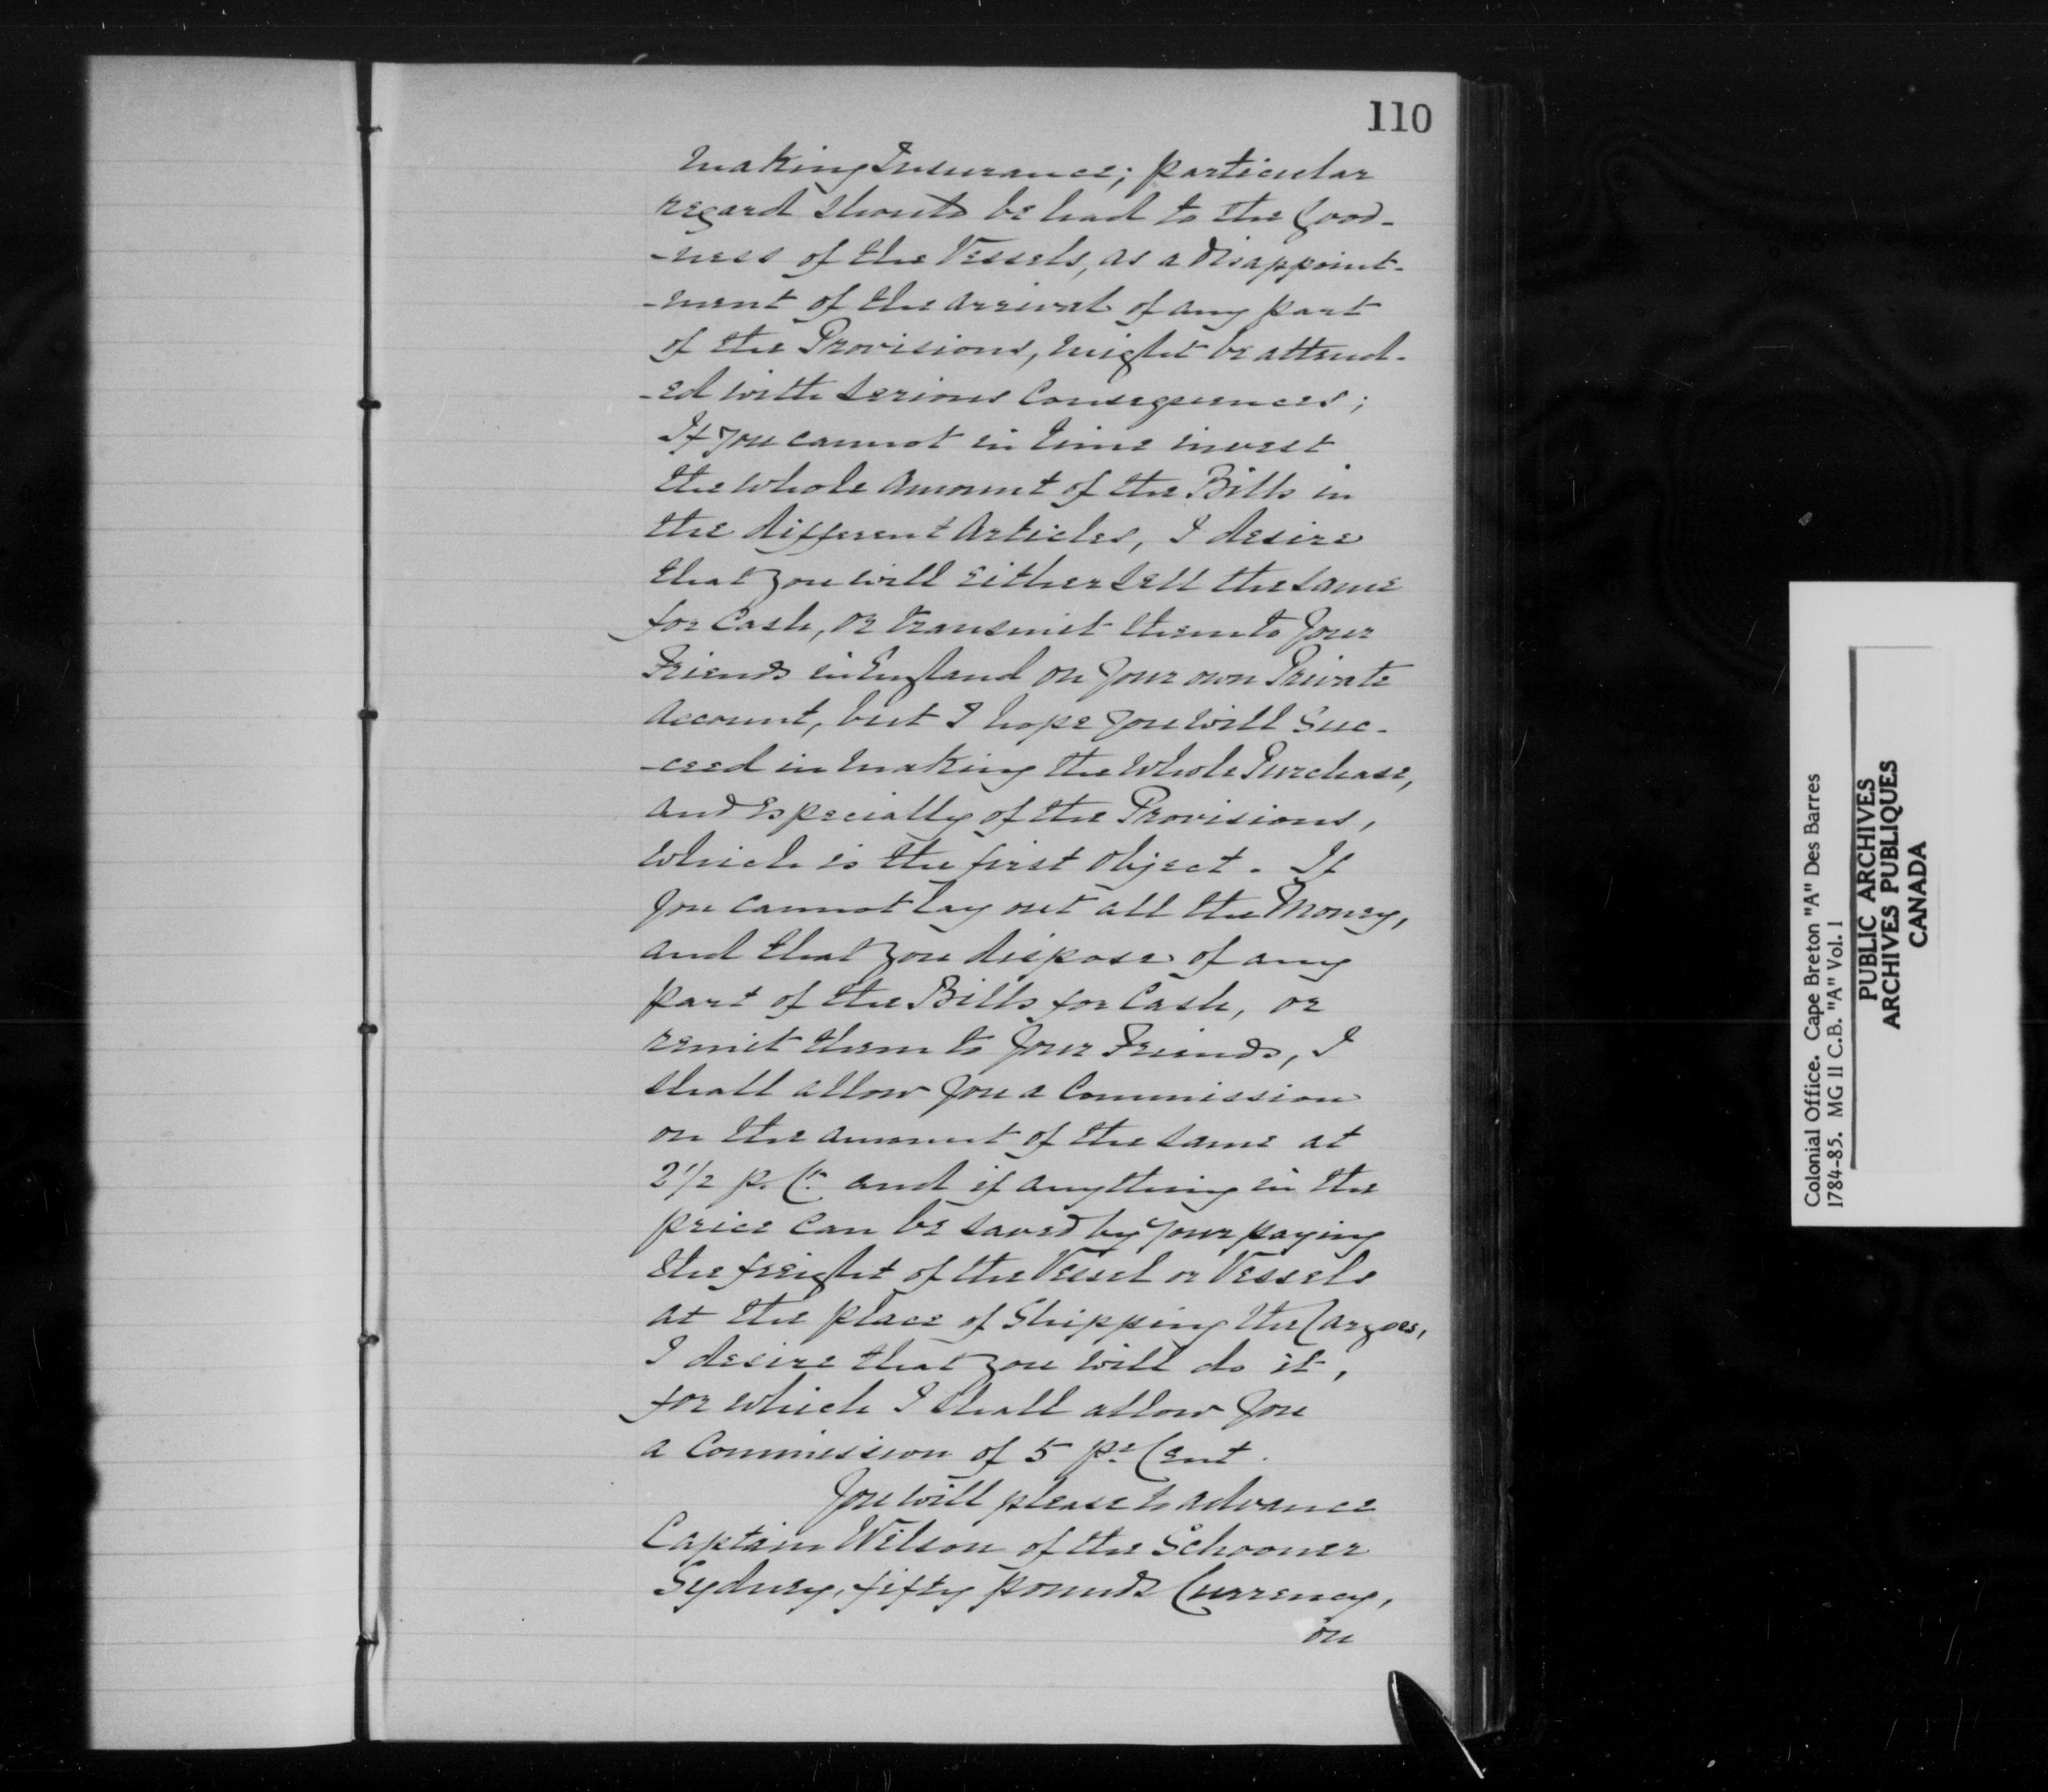 110
making Insurance; particular
regard should be had to the good-
-ness of the Vessels, as a disappoint-
-ment of the arrival of any part
of the Provisions, might be attend-
-ed with serious Consequences;
If you cannot in time invest
the whole amount of the Bills in
the different Articles, I desire
that you will either sell the same
for Cash, or transmit them to your
Friends in England on your own Private
Account, but I hope you will Suc-
-ceed in making the whole Purchase,
and Especially of the Provisions,
which is the first object. If
you cannot lay out all the Money,
and that you dispose of any
part of the Bills for Cash, or
remit them to your Friends, I
shall allow you a Commission
on the amount of the same at
2 1/2 p. Ct. and if anything in the
price can be saved by your paying
the freight of the Vessel or Vessels
at the place of Shipping the Cargoes,
I desire that you will do it,
for which I shall allow you
a Commission of 5 pr. Cent.
You will please to advance
Captain Wilson of the Schooner
Sydney, fifty pounds Currency,
on
Colonial Office. Cape Breton "A" Des Barres
1784-85. MG 11 C.B. "A" Vol. 1
PUBLIC ARCHIVES
ARCHIVES PUBLIQUES
CANADA